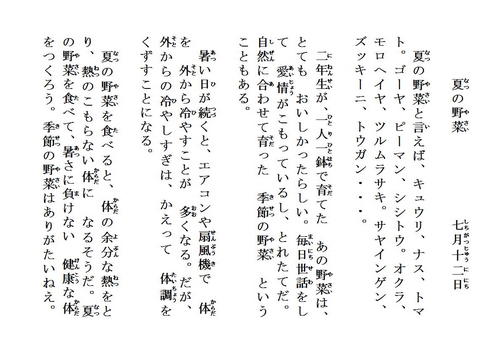 夏の野菜　七月十二日
夏の野菜と言えば、キュウリ、ナス、トマ
ト。ゴーヤ、ピーマン、シシトウ。オクラ、
モロヘイヤ、ツルムラサキ。サヤインゲン、
ズッキーニ、トウガン・・・。
二年生が、一人一鉢で育てた　あの野菜は、
とても　おいしかったらしい。毎日世話をし
て　愛情がこもっているし、とれたてだ。
自然に合わせて育った　季節の野菜　という
こともある。
暑い日が続くと、エアコンや扇風機で　体
を　外から冷やすことが　多くなる。だが、
外からの冷やしすぎは、かえって　体調を
くずすことになる。
夏の野菜を食べると、体の余分な熱をと
り、熱のこもらない体に　なるそうだ。夏
の野菜を食べて、暑さに負けない　健康な体
をつくろう。季節の野菜はありがたいねえ。